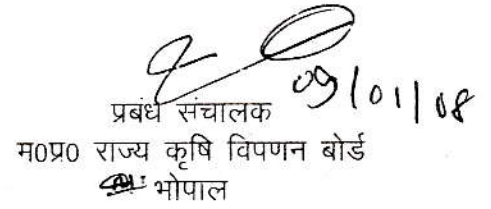 09/01/08
प्रबंध संचालक
म0प्र0 राज्य कृषि विपणन बोर्ड
भोपाल